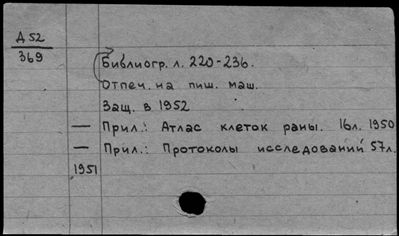 Д 52
369
Библиогр. л. 220-236.
Отпеч. на пиш. маш.
Защ. в 1952
— Прил.: Атлас клеток раны. 16л. 1950
— Прил.: Протоколы исследований 57л.
1951